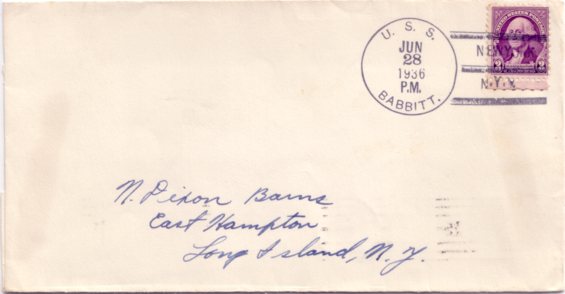 U. S. S.
JUN
28
1936
P.M.
BABBITT.
NEW YORK
N.Y.
3 3
N. Dixon Barns
East Hampton
Long Island, N. Y.